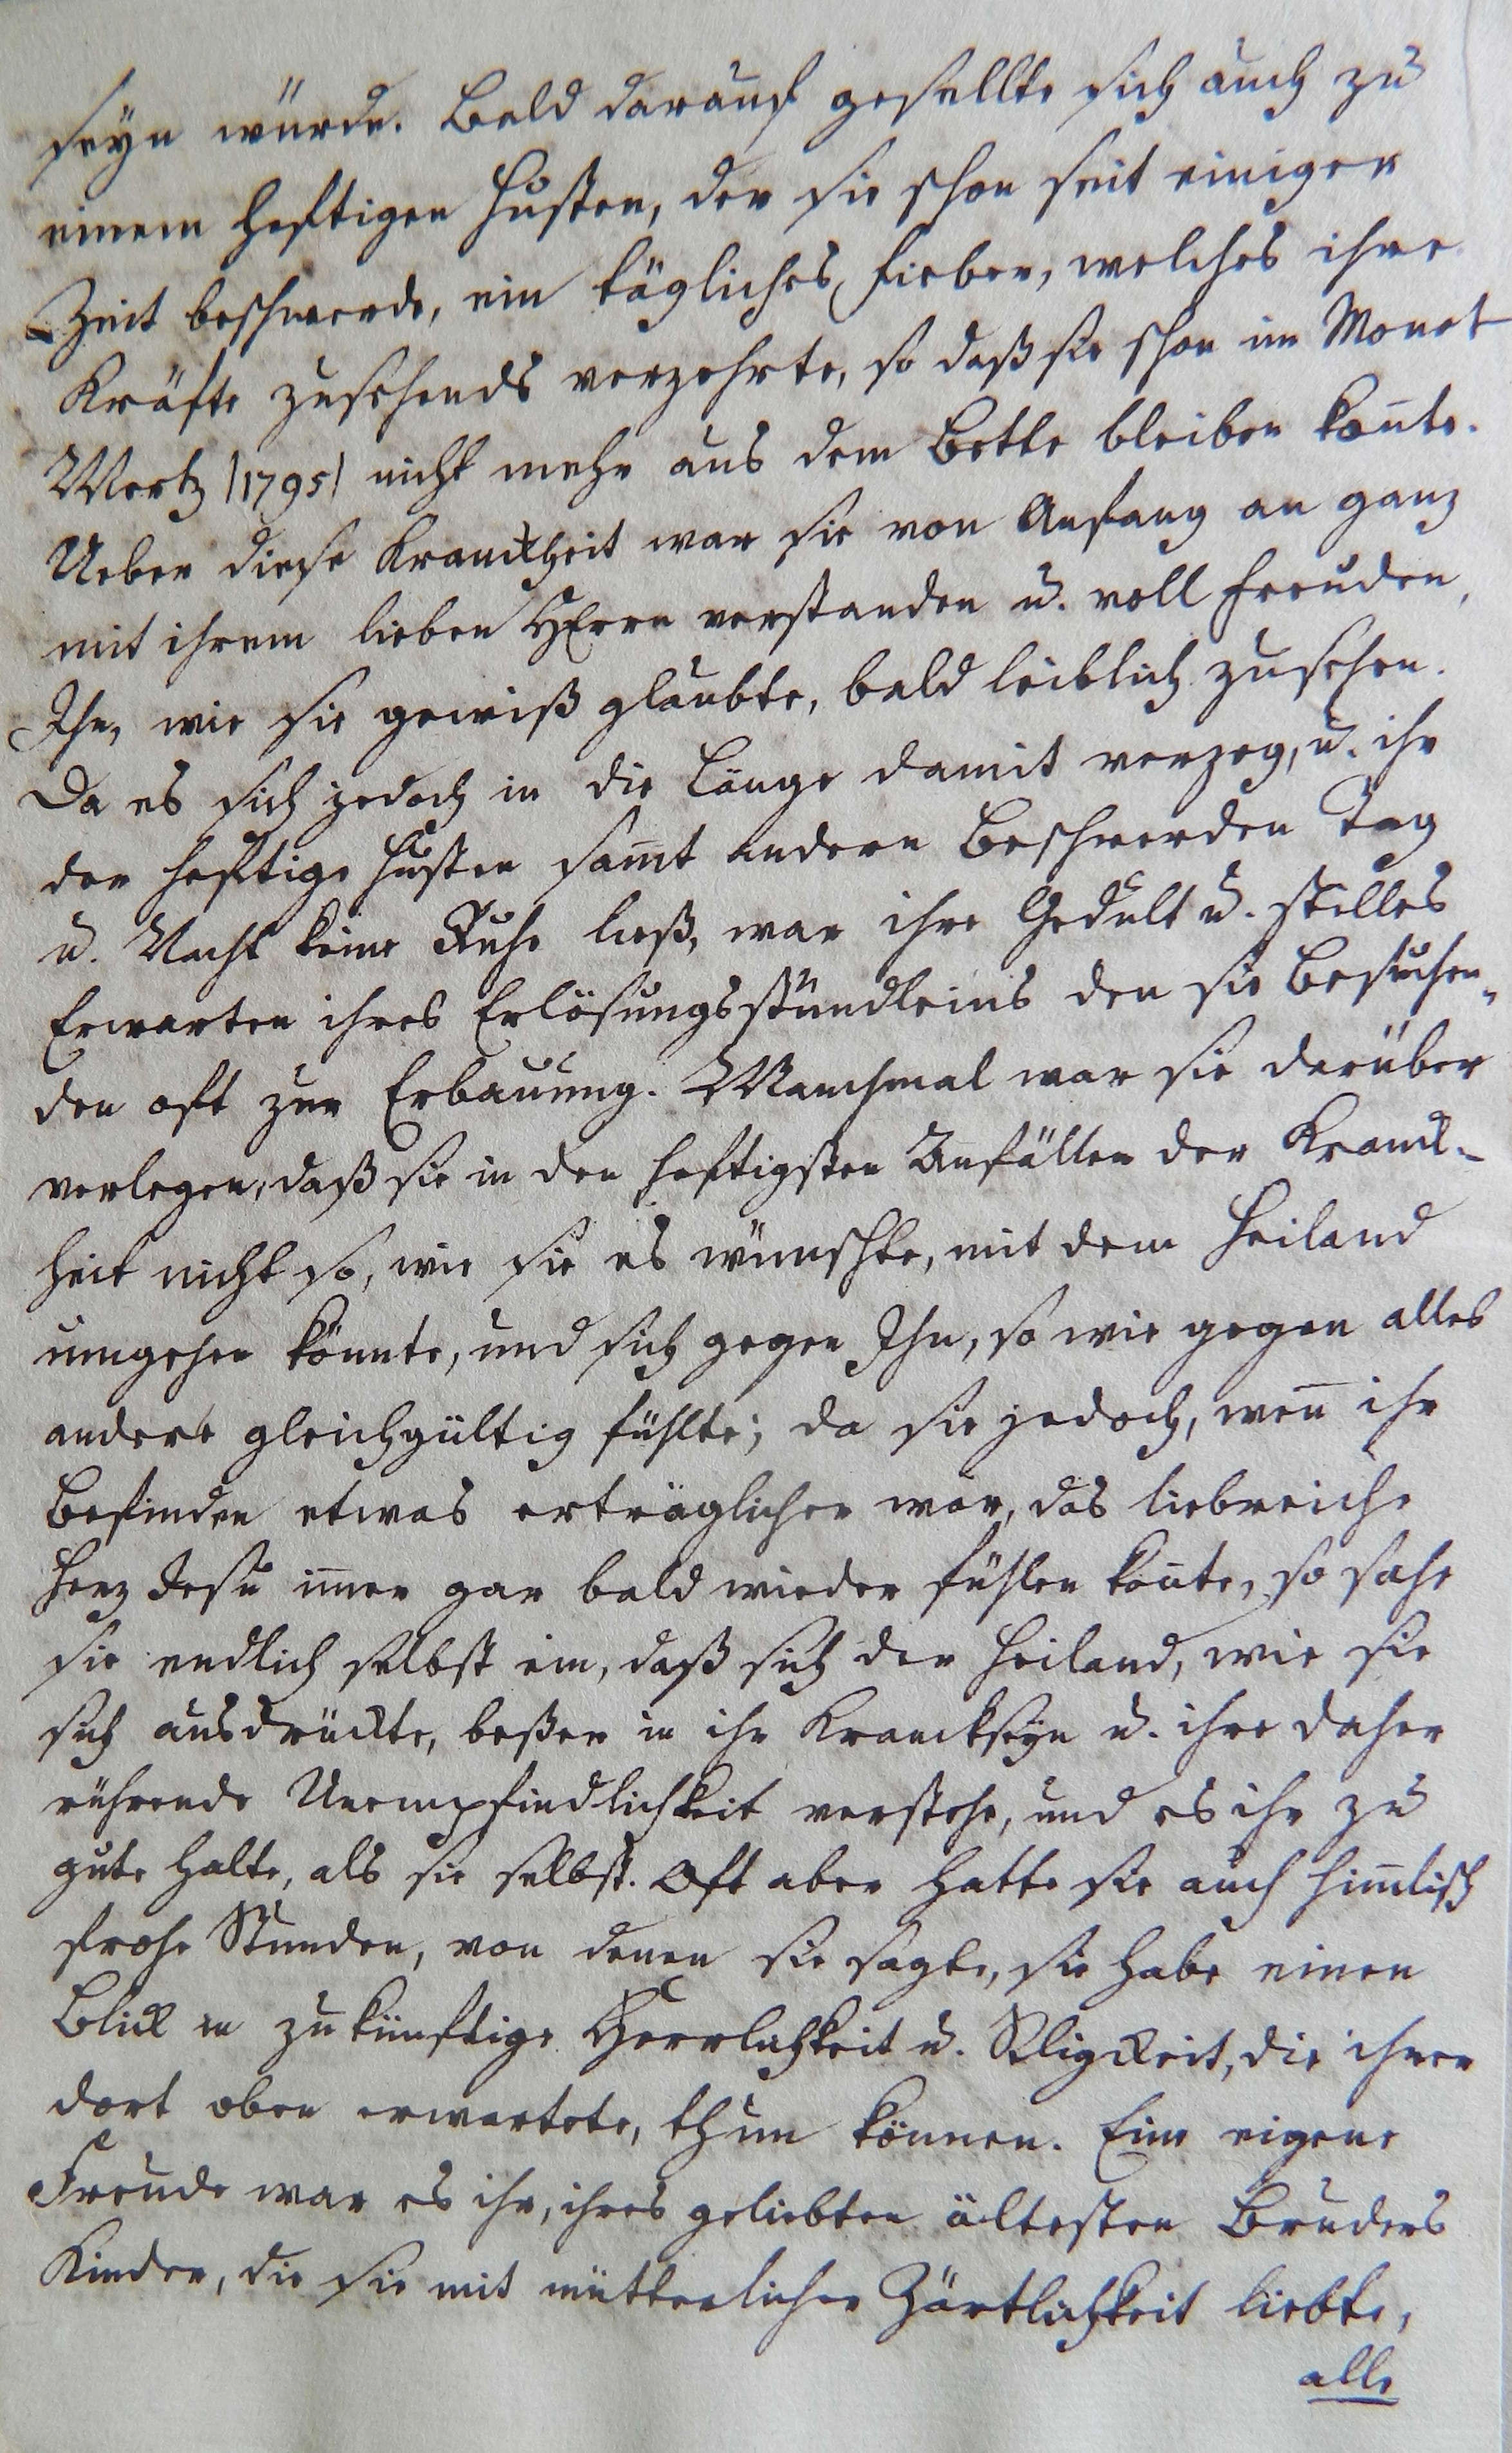 seyn würde. Bald darauf gesellte sich auch zu
einem heftigen Husten, der sie schon seit einiger
Zeit beschwerde, ein tägliches Fieber, welches ihre
Kräfte zusehends verzehrte, so daß sie schon im Monat
Mertz /1795/ nicht mehr aus dem Bette bleiben kon̄te.
Ueber diese Kranckheit war sie von Anfang an ganz
mit ihrem lieben HErrn verstanden u. voll Freuden,
Ihn, wie sie gewiß glaubte, bald leiblich zu sehen.
Da es sich jedoch in die Länge damit verzog, u. ihr
der heftige Husten sam̄t andern Beschwerden Tag
u. Nacht keine Ruhe ließ, war ihre Gedult u. stilles
Erwarten ihres Erlösungsstündleins den sie Besuchen-
den oft zur Erbauung. Manchmal war sie darüber
verlegen, daß sie in den heftigsten Anfällen der Kranck-
heit nicht so, wie sie es wünschte, mit dem Heiland
umgehen könnte, und sich gegen Ihn, so wie gegen alles
andere gleichgültig fühlte; da sie jedoch, wen̄ ihr
Befinden etwas erträglicher war, das liebreiche
Herz Jesu im̄er gar bald wieder fühlen kon̄te, so sahe
sie endlich selbst ein, daß sich der Heiland, wie sie
sich ausdrückte, beßer in ihr Kranckseyn u. ihre daher
rührende Unempfindlichkeit verstehe, und es ihr zu
gute halte, als sie selbst. Oft aber hatte sie auch him̄lisch
frohe Stunden, von denen sie sagte, sie habe einen
Blick in zukünftige Herrlichkeit u. Seligkeit, die ihrer
dort oben erwartete, thun können. Eine eigene
Freude war es ihr, ihres geliebten ältesten Bruders
Kinder, die sie mit mütterlicher Zärtlichkeit liebte,
alle